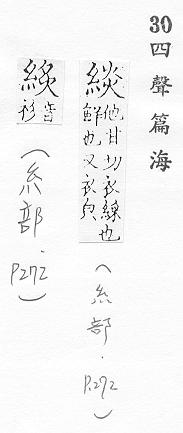 30 四聲篇海
緂 他甘切衣 也
鮮也又衣皃
(糸部.P.272)
音
衫
(糸部.P272)